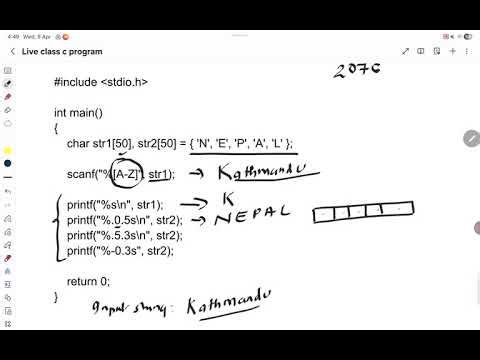 4:49 Wed, 9 Apr
Live class c program
2076
#include <stdio.h>
int main()
{
char str1[50], str2[50] = { 'N', 'E', 'P', 'A', 'L' };
scanf("%[A-Z]", str1); Kathmandu
printf("%s\n", str1); K
printf("%.0.5s\n", str2); NEPAL
printf("%.5.3s\n", str2);
printf("%-0.3s", str2);
return 0;
}
Input string: Kathmandu